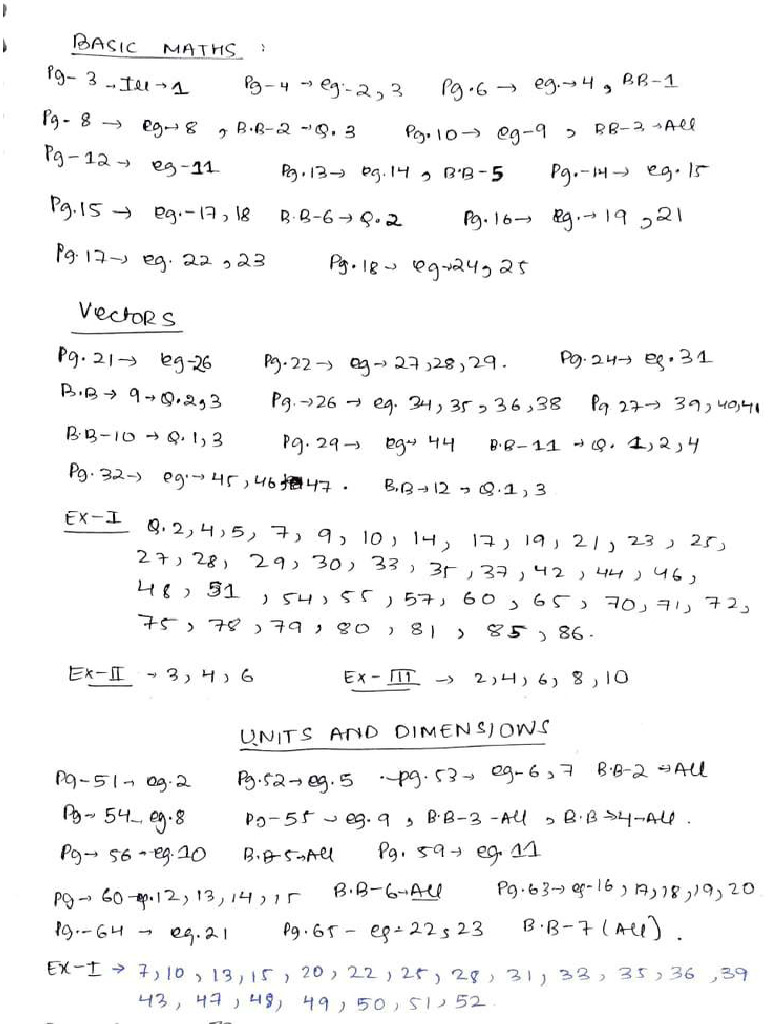 BASIC MATHS :
Pg- 3 → Ill → 1 Pg-4 → eg:-2, 3 Pg.6 → eg.→4, BB-1
Pg- 8 → eg→8, B.B-2 → Q.3 Pg.10→ eg-9, BB-3 →All
Pg-12→ eg-11 Pg.13→ eg.14, B.B-5 Pg.-14→ eg.15
Pg.15 → eg.-17, 18 B.B-6→Q.2 Pg.16→ eg.→19, 21
Pg.17→ eg. 22, 23 Pg.18→ eg→24, 25
Vectors
Pg.21→ eg-26 Pg.22→ eg→27, 28, 29. Pg.24→ eg.31
B.B→ 9→Q.2,3 Pg.→26 → eg. 34, 35, 36, 38 Pg 27→ 39, 40, 41
B.B-10 → Q.1,3 Pg.29→ eg→ 44 B.B-11 → Q. 1, 2, 4
Pg.32→ eg.→45, 46, 47. B.B→12 → Q.1, 3
EX-I Q.2, 4, 5, 7, 9, 10, 14, 17, 19, 21, 23, 25,
27, 28, 29, 30, 33, 35, 37, 42, 44, 46,
48, 51, 54, 55, 57, 60, 65, 70, 71, 72,
75, 78, 79, 80, 81, 85, 86.
Ex-II → 3, 4, 6 Ex-III → 2, 4, 6, 8, 10
UNITS AND DIMENSIONS
Pg-51→ eg.2 Pg.52→eg.5 Pg.53→ eg-6, 7 B.B-2 →All
Pg→ 54→ eg.8 Pg-55 → eg.9, B.B-3 -All, B.B→4→All.
Pg→ 56 → eg.10 B.B-5→All Pg. 59→ eg. 11
Pg→ 60→eg.12, 13, 14, 15 B.B-6→All Pg.63→ eg-16, 17, 18, 19, 20
Pg.-64 → eg.21 Pg.65 - eg- 22, 23 B.B-7 (All).
EX-I → 7, 10, 13, 15, 20, 22, 25, 28, 31, 33, 35, 36, 39
43, 47, 48, 49, 50, 51, 52.